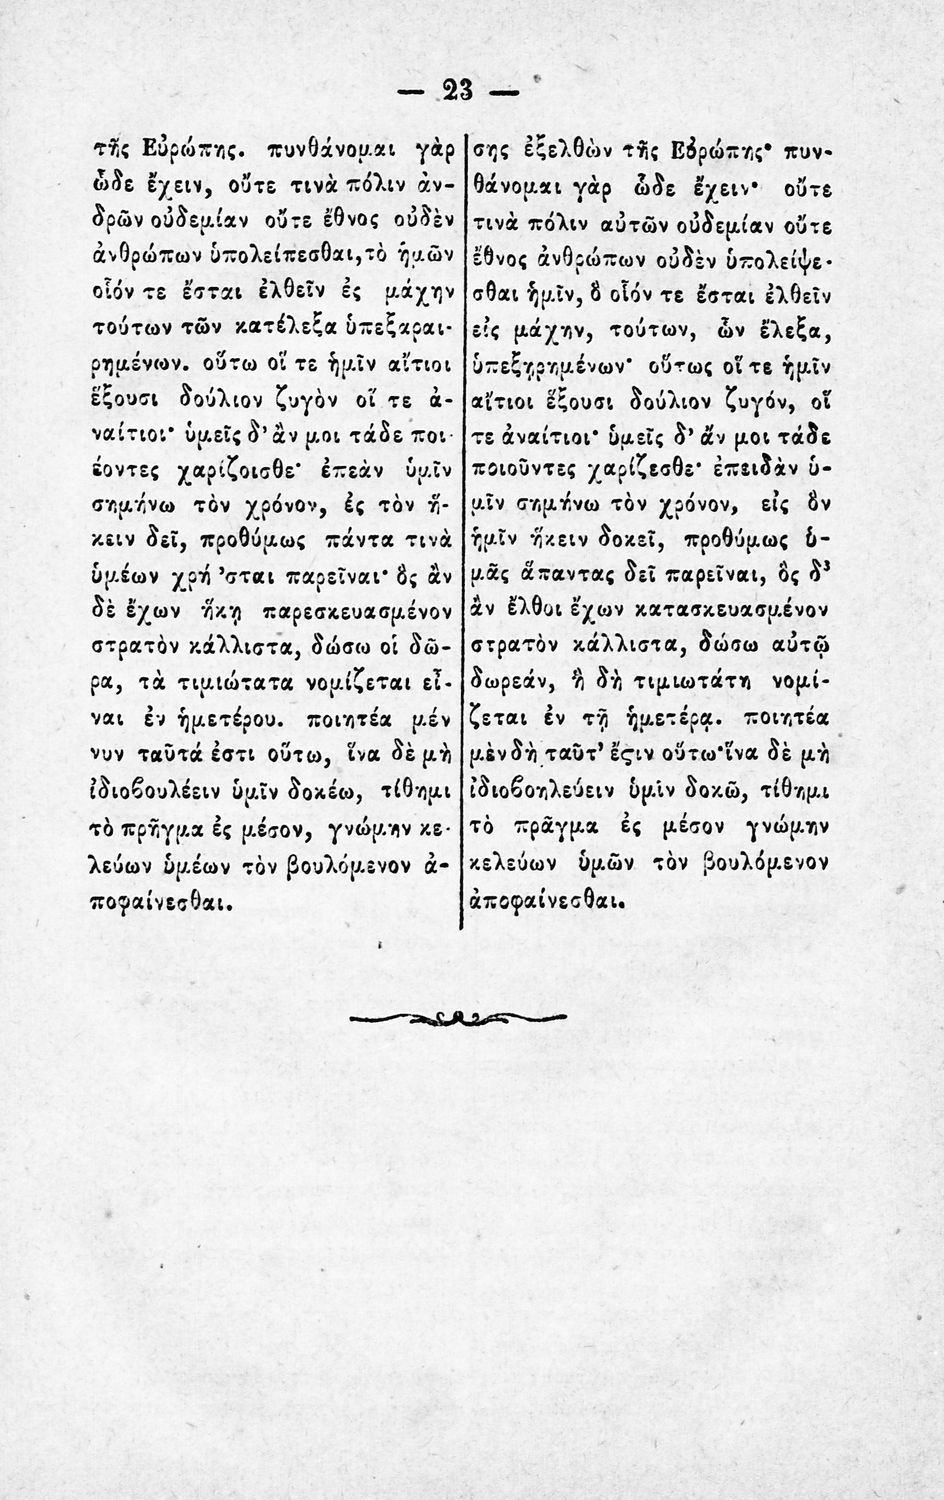 — 23 —
τῆς Εὐρώπης. πυνθάνομαι γὰρ
ὧδε ἔχειν, οὔτε τινὰ πόλιν ἀν-
δρῶν οὐδεμίαν οὔτε ἔθνος οὐδὲν
ἀνθρώπων ὑπολείπεσθαι, τὸ ἡμῶν
οἷόν τε ἔσται ἐλθεῖν ἐς μάχην
τούτων τῶν κατέλεξα ὑπεξαραι-
ρημένων. οὕτω οἵ τε ἡμῖν αἴτιοι
ἕξουσι δούλιον ζυγὸν οἵ τε ἀ-
ναίτιοι· ὑμεῖς δ' ἂν μοι τάδε ποι-
έοντες χαρίζοισθε· ἐπεὰν ὑμῖν
σημήνω τὸν χρόνον, ἐς τὸν ἥ-
κειν δεῖ, προθύμως πάντα τινὰ
ὑμέων χρή 'σται παρεῖναι· ὃς ἂν
δὲ ἔχων ἥκῃ παρεσκευασμένον
στρατὸν κάλλιστα, δώσω οἱ δῶ-
ρα, τὰ τιμιώτατα νομίζεται εἶ-
ναι ἐν ἡμετέρου. ποιητέα μέν
νυν ταῦτά ἐστι οὕτω, ἵνα δὲ μὴ
ἰδιοβουλέειν ὑμῖν δοκέω, τίθημι
τὸ πρῆγμα ἐς μέσον, γνώμην κε-
λεύων ὑμέων τὸν βουλόμενον ἀ-
ποφαίνεσθαι.
σης ἐξελθὼν τῆς Εὐρώπης· πυν-
θάνομαι γὰρ ὧδε ἔχειν· οὔτε
τινὰ πόλιν αὐτῶν οὐδεμίαν οὔτε
ἔθνος ἀνθρώπων οὐδὲν ὑπολείψε-
σθαι ἡμῖν, ὃ οἷόν τε ἔσται ἐλθεῖν
εἰς μάχην, τούτων, ὧν ἔλεξα,
ὑπεξῃρημένων· οὕτως οἵ τε ἡμῖν
αἴτιοι ἕξουσι δούλιον ζυγόν, οἵ
τε ἀναίτιοι· ὑμεῖς δ' ἄν μοι τάδε
ποιοῦντες χαρίζεσθε· ἐπειδὰν ὑ-
μῖν σημήνω τὸν χρόνον, εἰς ὃν
ἡμῖν ἥκειν δοκεῖ, προθύμως ὑ-
μᾶς ἅπαντας δεῖ παρεῖναι, ὃς δ'
ἂν ἔλθοι ἔχων κατασκευασμένον
στρατὸν κάλλιστα, δώσω αὐτῷ
δωρεάν, ἣ δὴ τιμιωτάτη νομί-
ζεται ἐν τῇ ἡμετέρᾳ. ποιητέα
μὲν δὴ ταῦτ' ἔϛιν οὕτω· ἵνα δὲ μὴ
ἰδιοβοηλεύειν ὑμὶν δοκῶ, τίθημι
τὸ πρᾶγμα ἐς μέσον γνώμην
κελεύων ὑμῶν τὸν βουλόμενον
ἀποφαίνεσθαι.